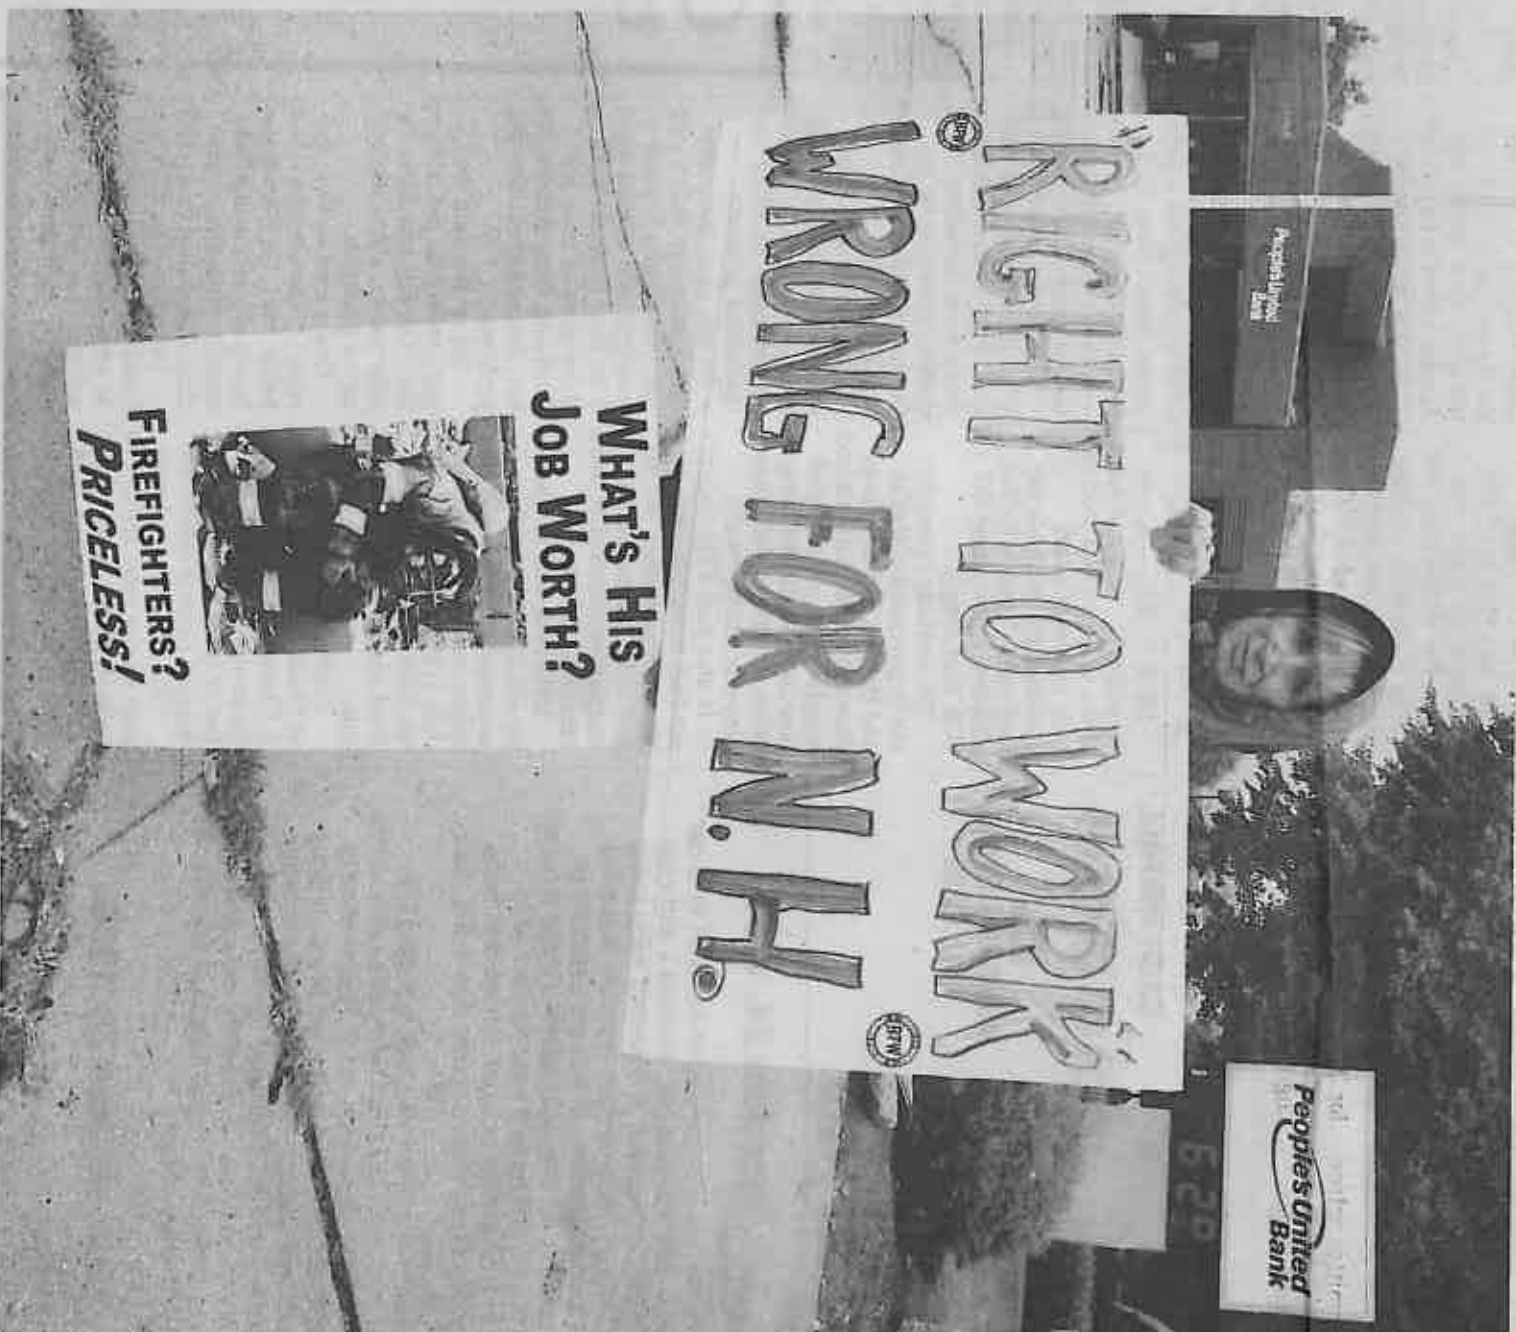 People's United
Bank
People's United
Bank
6:20
'RIGHT TO WORK'
WRONG FOR N.H.
WHAT'S HIS
JOB WORTH?
FIREFIGHTERS?
PRICELESS!